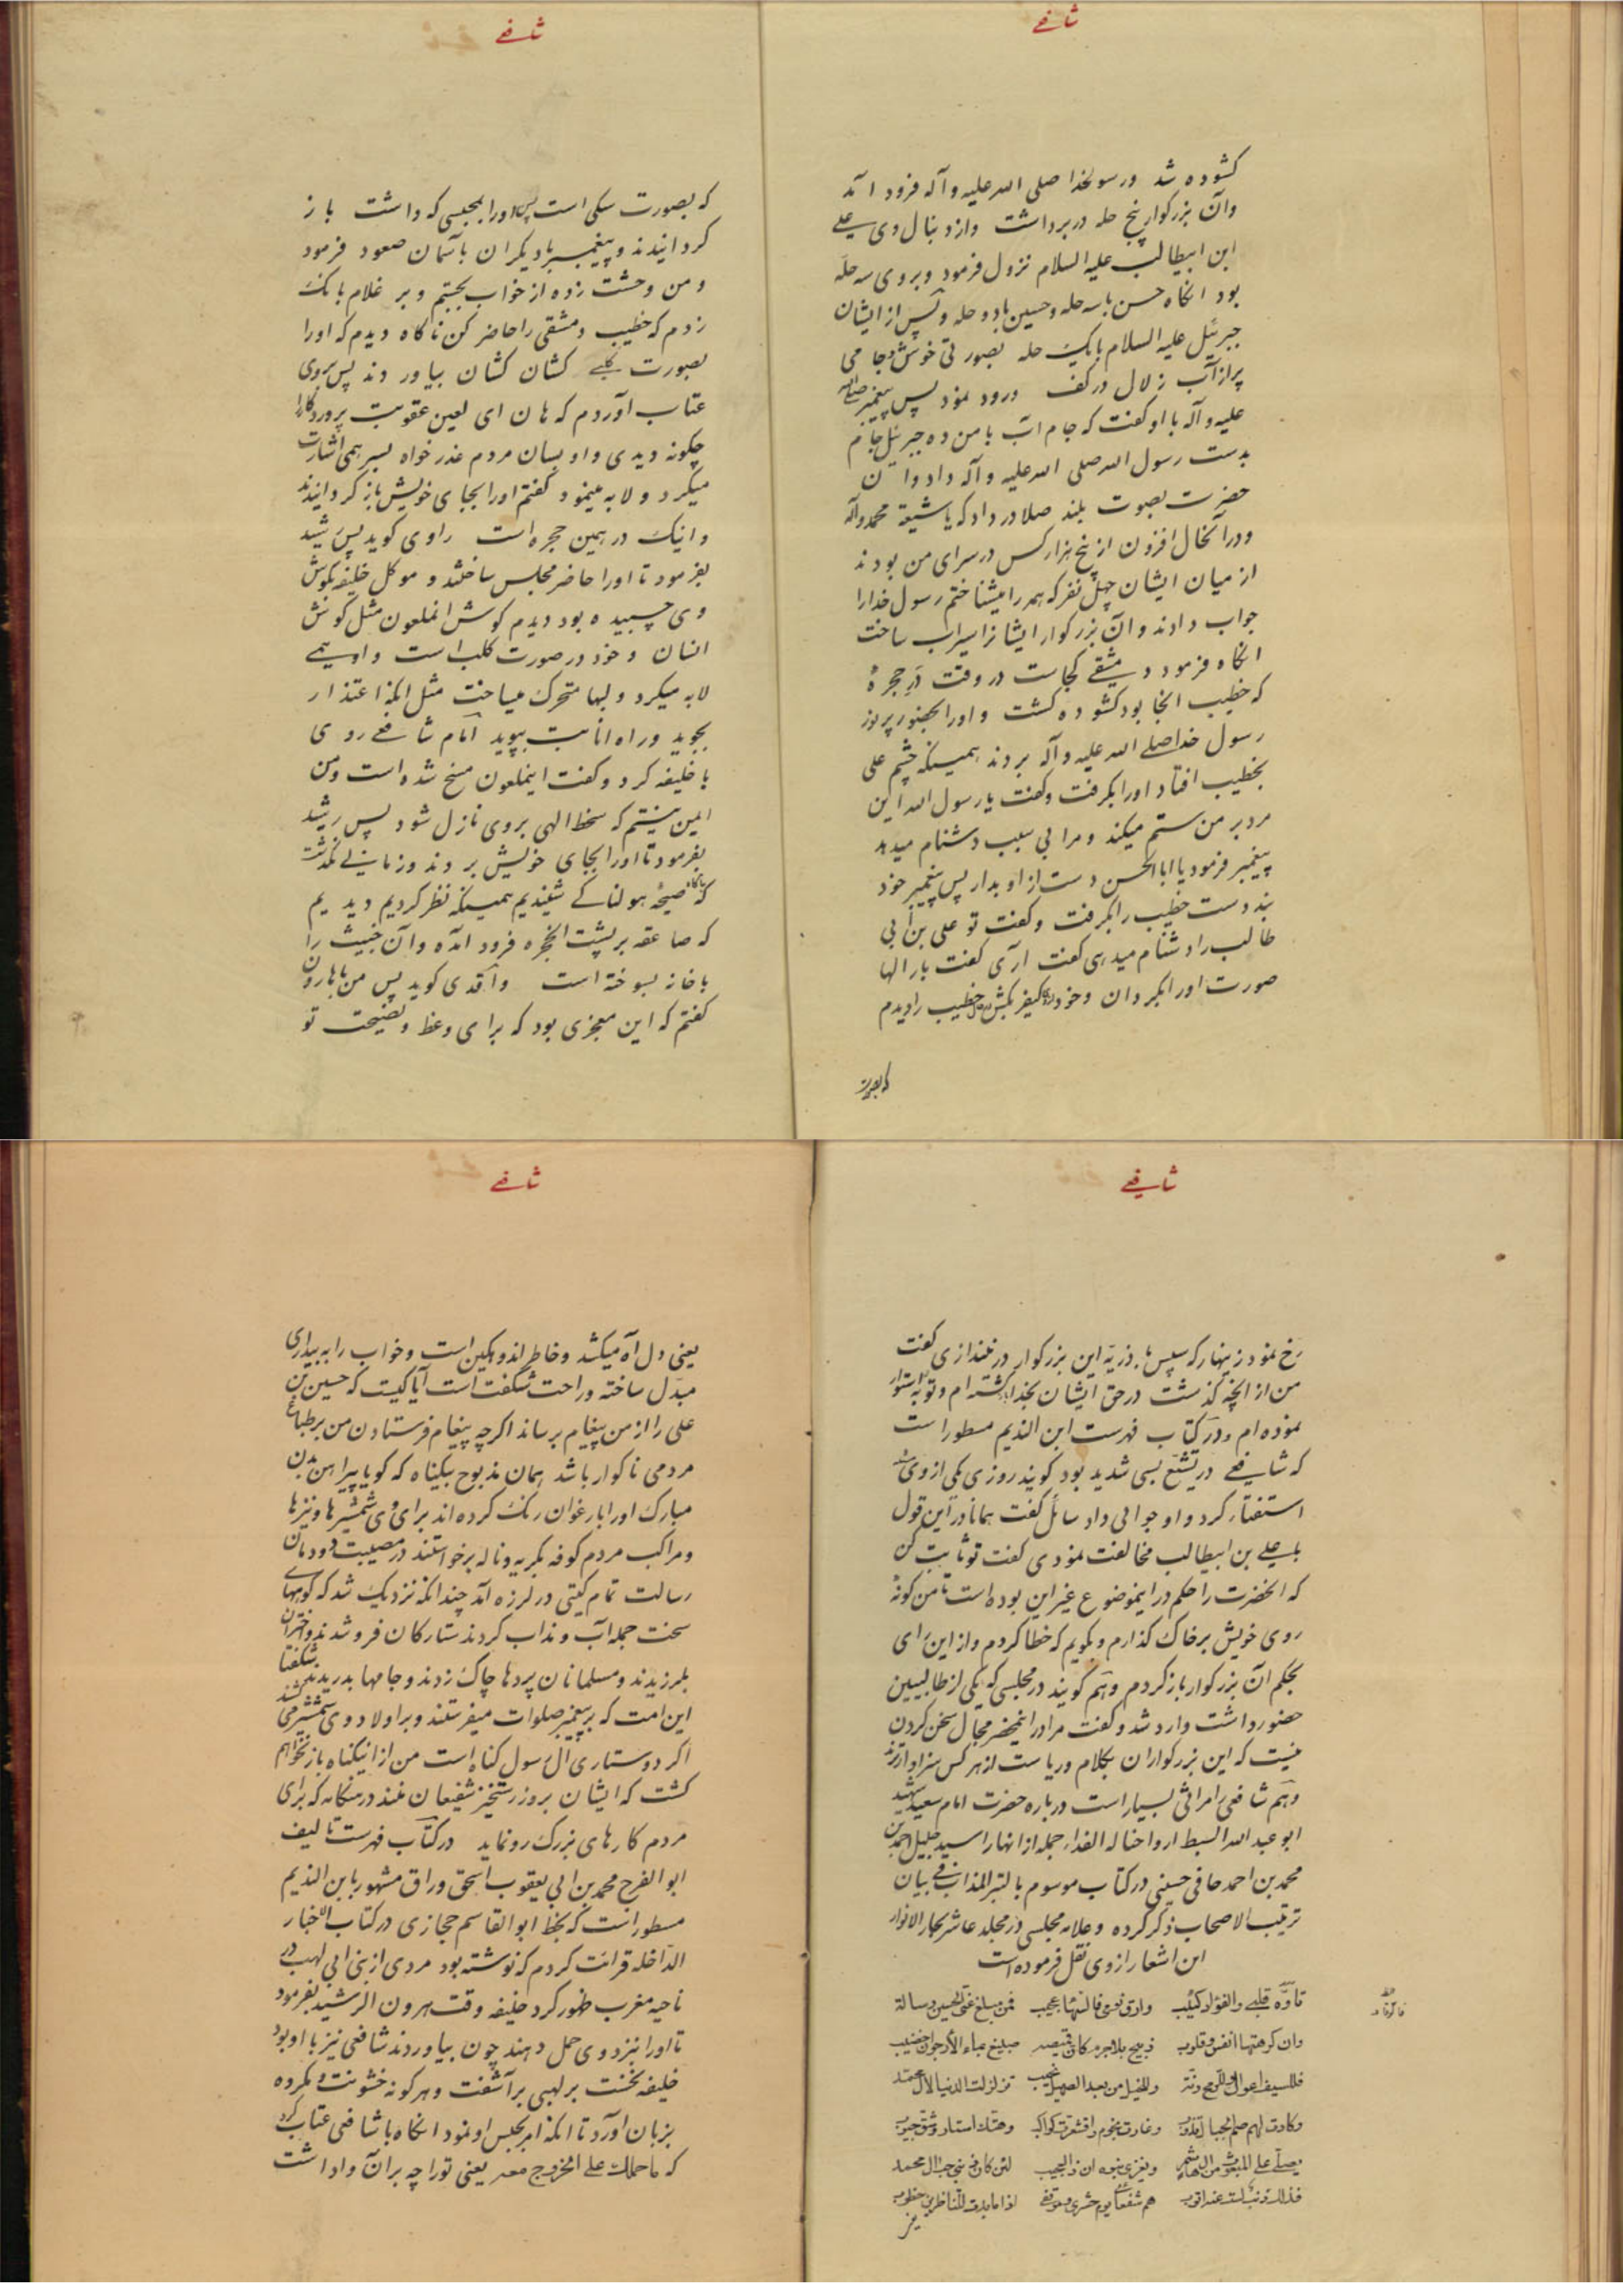 شافعے
کشوده شد ورسولخدا صلی الله علیه وآله فرود آمد
وآن بزرکوار پنج حله در برداشت وازدنبال وی علے
ابن ابیطالب علیه السلام نزول فرمود وبروی سه حله
بود انکاه حسن باسه حله وحسین بادو حله وپس از ایشان
جبرئیل علیه السلام بایک حله بصورتی خوش وجامی
پراز آب زلال درکف ورود نمود پس پیغمبر صلی الله
علیه وآله با او کفت که جام آب بامن ده جبرئیل جام
بدست رسول الله صلی الله علیه وآله داد وان
حضرت بصوت بلند صلا درداد که یا شیعة محمد وآله
ودرآنحال افزون از پنج هزار کس درسرای من بودند
از میان ایشان چهل نفر که همه را میشناختم رسول خدارا
جواب دادند وآن بزرکوار ایشانرا سیراب ساخت
انکاه فرمود دمشقے کجاست در وقت در حجرهٔ
که خطیب انجا بود کشوده کشت واورا بحضور پرنور
رسول خدا صلے الله علیه وآله بردند همینکه چشم علی
بخطیب افتاد اورا بکرفت وکفت یا رسول الله این
مرد بر من ستم میکند ومرا بی سبب دشنام میدهد
پیغمبر فرمود یا ابا الحسن دست از او بدار پس پیغمبر خود
بند دست خطیب را بکرفت وکفت تو علی بن ابی
طالب را دشنام میدهی کفت آری کفت بار الها
صورت اورا بکردان وخود کیفر بکش خطیب را دیدم
که بصورت
شافعے
که بصورت سکی است پس اورا بمحبسی که داشت باز
کردانیدند وپیغمبر بادیکران باسمان صعود فرمود
ومن وحشت زده از خواب بجستم وبر غلام بانک
زدم که خطیب دمشقی را حاضر کن ناکاه دیدم که اورا
بصورت کلبے کشان کشان بیاوردند پس بروی
عتاب آوردم که هان ای لعین عقوبت پروردکار را
چکونه دیدی واو بسان مردم عذر خواه بسر همی اشارت
میکرد ولابه مینمود کفتم اورا بجای خویش باز کردانیدند
واینک در همین حجره است راوی کوید پس رشید
بفرمود تا اورا حاضر مجلس ساختند وموکل خلیفه بکوش
وی چسبیده بود دیدم کوش انملعون مثل کوش
انسان وخود در صورت کلب است واو همے
لابه میکرد ولبها متحرک میساخت مثل انکه اعتذار
بجوید وراه انابت بپوید امام شافعے روی
با خلیفه کرد وکفت اینملعون مسخ شده است ومن
ایمن نیستم که سخط الهی بروی نازل شود پس رشید
بفرمود تا اورا بجای خویش بردند وزمانے نکذشت
که ناکاه صیحهٔ هولناکے شنیدیم همینکه نظر کردیم دیدیم
که صاعقه بر پشت الحجره فرود آمده وآن خبیث را
باخانه بسوخته است واقدی کوید پس من با هارون
کفتم که این معجزی بود که برای وعظ ونصیحت تو
شافعے
رخ نمود زینهار که سپس با ذریهٔ این بزرکوار در نیندازی کفت
من از انچه کذشت در حق ایشان بخدا کشته ام وتوبه استوار
نموده ام ودر کتاب فهرست ابن الندیم مسطور است
که شافعے در تشیع بسی شدید بود کویند روزی یکی از وی
استفتاء کرد واو جوابی داد سائل کفت همانا در این قول
با علے بن ابیطالب مخالفت نمودی کفت تو ثابت کن
که انحضرت را حکم در اینموضوع غیر این بوده است تا من کونهٔ
روی خویش بر خاک کذارم وبکویم که خطا کردم واز این رای
بحکم آن بزرکوار باز کردم وهم کویند در مجلسی که یکی از طالبیین
حضور داشت وارد شد وکفت مرا در اینمحضر مجال سخن کردن
نیست که این بزرکواران بکلام وریاست از هر کس سزاوارترند
وهم شافعی را مراثی بسیار است درباره حضرت امام سعید شهید
ابو عبد الله السبط ارواحنا له الفداء جمله از انها را سید جلیل احمد بن
محمد بن احمد حافی حسینی در کتاب موسوم بالتبر المذاب فے بیان
ترتیب الاصحاب ذکر کرده وعلامه مجلسی در مجلد عاشر بحار الانوار
این اشعار از وی نقل فرموده است
تاوّه قلبے والفؤاد کئیب وارّق نومی فالسّهاد عجیب فمن مبلغ عنّی الحسین رسالة
وان کرهتها انفس وقلوب ذبیح بلا جرم کانّ قمیصه صبیغ بماء الارجوان خضیب
فللسیف اعوال وللرّمح رنّة وللخیل من بعد الصهیل نحیب تزلزلت الدنیا لآل محمّد
وکادت لهم صمّ الجبال تذوب وغارت نجوم واقشعرت کواکب وهتک استار وشقّ جیوب
یصلّے علی المبعوث من آل هاشم ویغزی بنوه ان ذا لعجیب لئن کان ذنبی حبّ آل محمد
فذلک ذنب لست عنه اتوب هم شفعائی یوم حشری وموقفے اذا ما بدت للنّاظرین خطوب
شافعے
یعنی دل آه میکشد وخاطر اندوهکین است وخواب را به بیداری
مبدّل ساخته وراحت شکفت است آیا کیست که حسین بن
علی را از من پیغام برساند اکرچه پیغام فرستادن من بر طباع
مردمی ناکوار باشد همان مذبوح بیکناه که کویا پیراهن بدن
مبارک اورا بارغوان رنک کرده اند برای وی شمشیرها ونیزها
ومراکب مردم کوفه بکریه وناله برخواستند در مصیبت دودمان
رسالت تمام کیتی در لرزه آمد چندانکه نزدیک شد که کوههای
سخت جمله آب ونداب کردند ستارکان فرو شدند واختران
بلرزیدند ومسلمانان پردها چاک زدند وجامها بدریدند شکفتا
این امت که بر پیغمبر صلوات میفرستند وبر اولاد وی شمشیر می کشند
اکر دوستاری آل رسول کناه است من از اینکناه باز نخواهم
کشت که ایشان بروز رستخیز شفیعان منند در هنکامه که برای
مردم کارهای بزرک رو نماید در کتاب فهرست تالیف
ابو الفرج محمد بن ابی یعقوب اسحق وراق مشهور بابن الندیم
مسطور است که بخط ابو القاسم حجازی در کتاب الاخبار
الداخله قرائت کردم که نوشته بود مردی از بنی ابی لهب در
ناحیه مغرب ظهور کرد خلیفه وقت هرون الرشید بفرمود
تا اورا نزد وی حمل دهند چون بیاوردند شافعی نیز با او بود
خلیفه نخست بر لهبی برآشفت وهر کونه خشونت ومکروه
بزبان آورد تا انکه امر بحبس او نمود انکاه با شافعی عتاب کرد
که ما حملک علے الخروج معه یعنی تورا چه بر آن واداشت